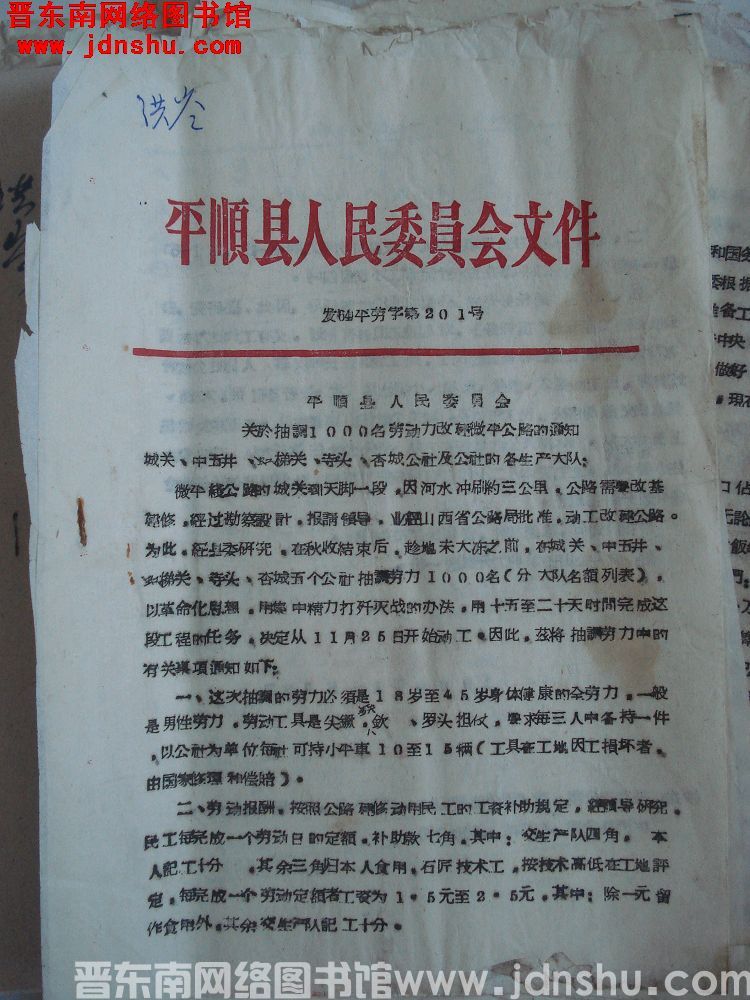 晋东南网络图书馆
www.jdnshu.com
洪岭
平順县人民委員会文件
发64平劳字第201号
平順县人民委員会
关於抽調1000名劳动力改建微平公路的通知
城关、中五井、梯关、寺头、杏城公社及公社的各生产大队：
微平綫公路的城关到天脚一段，因河水冲刷約三公里，公路需要改基
建修，經过勘察設計，报請領导，业經山西省公路局批准，动工改建公路。
为此，經县委研究，在秋收結束后，趁地未大冻之前，在城关、中五井、
梯关、寺头、杏城五个公社抽調劳力1000名（分大队名額列表），
以革命化思想，用集中精力打歼灭战的办法，用十五至二十天时間完成这
段工程的任务，决定从11月25日开始动工。因此，茲将抽調劳力中的
有关某項通知如下：
一、这次抽調的劳力必須是18岁至45岁身体健康的全劳力，一般
是男性劳力，劳动工具是尖鐝、锨、罗头担仗，要求每三人中备持一件
，以公社为单位每社可持小平車10至15辆（工具在工地因工損坏者，
由国家修理和偿賠）。
二、劳动报酬，按照公路建修动用民工的工資补助規定，經領导研究，
民工每完成一个劳动日的定額，补助款七角，其中：交生产队四角，本
人記工十分，其余三角归本人食用。石匠技术工，按技术高低在工地評
定，每完成一个劳动定額者工資为1·5元至2·5元，其中：除一元留
作食用外，其余交生产队記工十分。
和国务
委根据
准备工
中央
做好
。現在
口佔
无論
飯館
門：
晋东南网络图书馆www.jdnshu.com